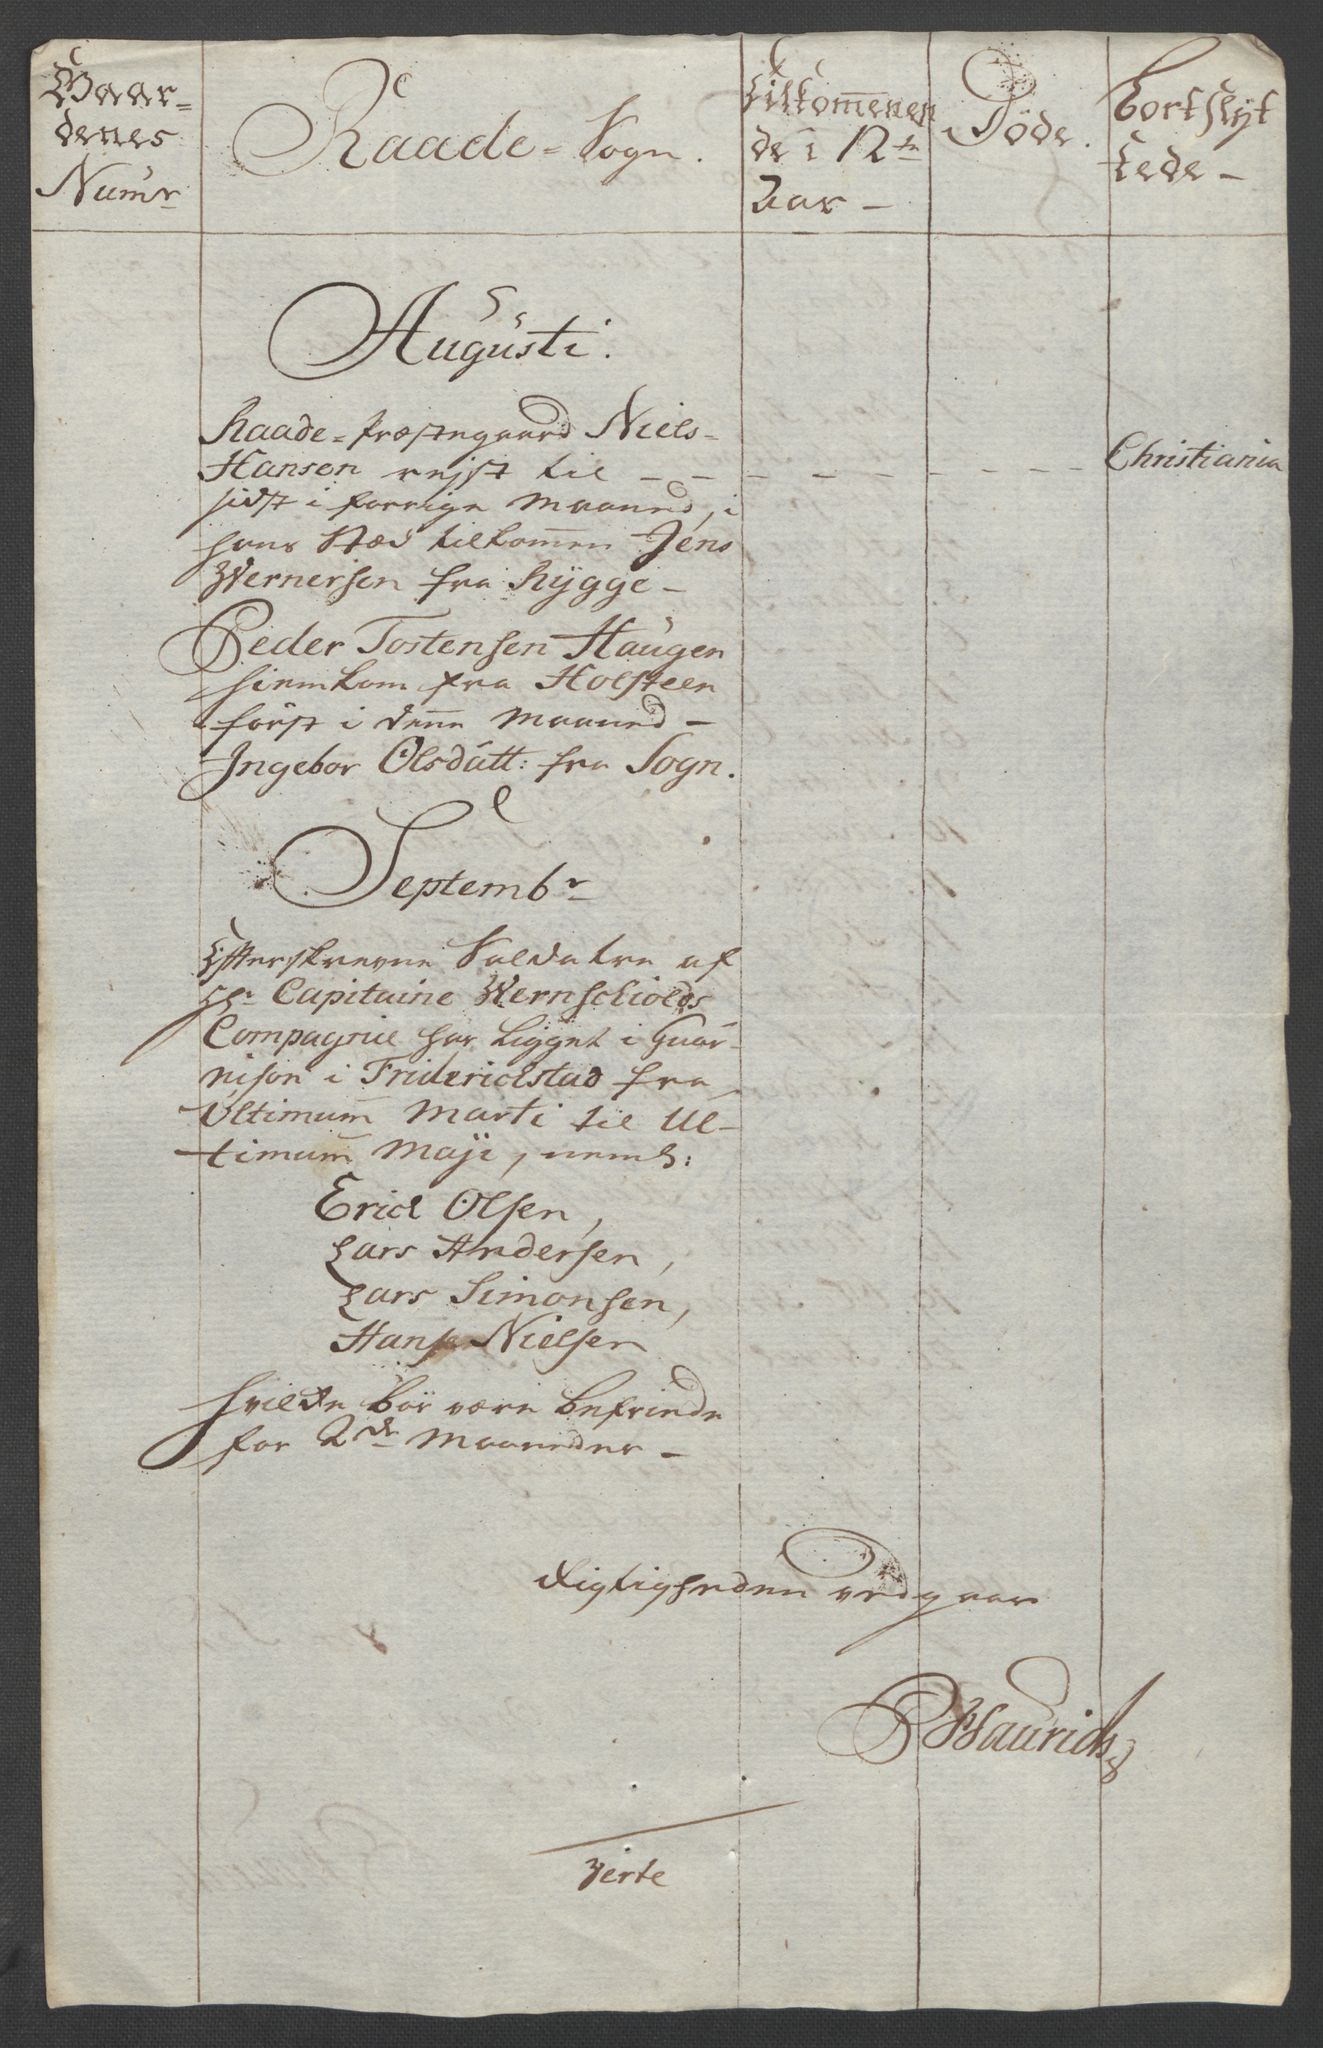 Gaar=
denes
Numr
Raade = Sogn.
Tilkomene
de i 12te
Aar -
Döde.
Bortflÿt
tede -
Augusti.
Raade = Præstegaard Niels
Hansen rejst til - - - - - - - - Christiania
sidst i forrige Maaned, i
hans Stæd tilkommen Jens
Wernersen fra Rÿgge -
Peder Tostensen Haugen
hiemkom fra Holsteen
først i denne Maaned -
Ingebor Olsdatt: fra Sogn.
Septembr
Efterskrevne Soldatere af
Hr. Capitaine Wernschiolds
Compagnie har ligget i Guar-
nison i Friderichstad fra
Ultimum Marti til Ul-
timum Maji, neml:
Erich Olsen,
Lars Andersen,
Lars Simonsen,
Hans Nielsen
hvilke bör være befriede
for 2de Maaneder -
Rigtigheden vedgaar
Verte